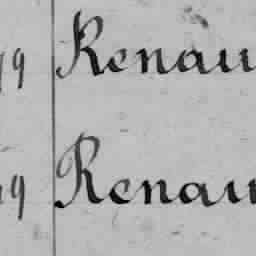 99 Renau
99 Renau